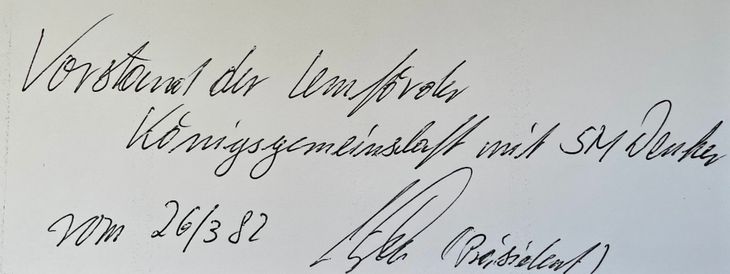 Vorstand der Lemförder
Königsgemeinschaft mit SM Denker
vom 26/3 82 (Präsident)